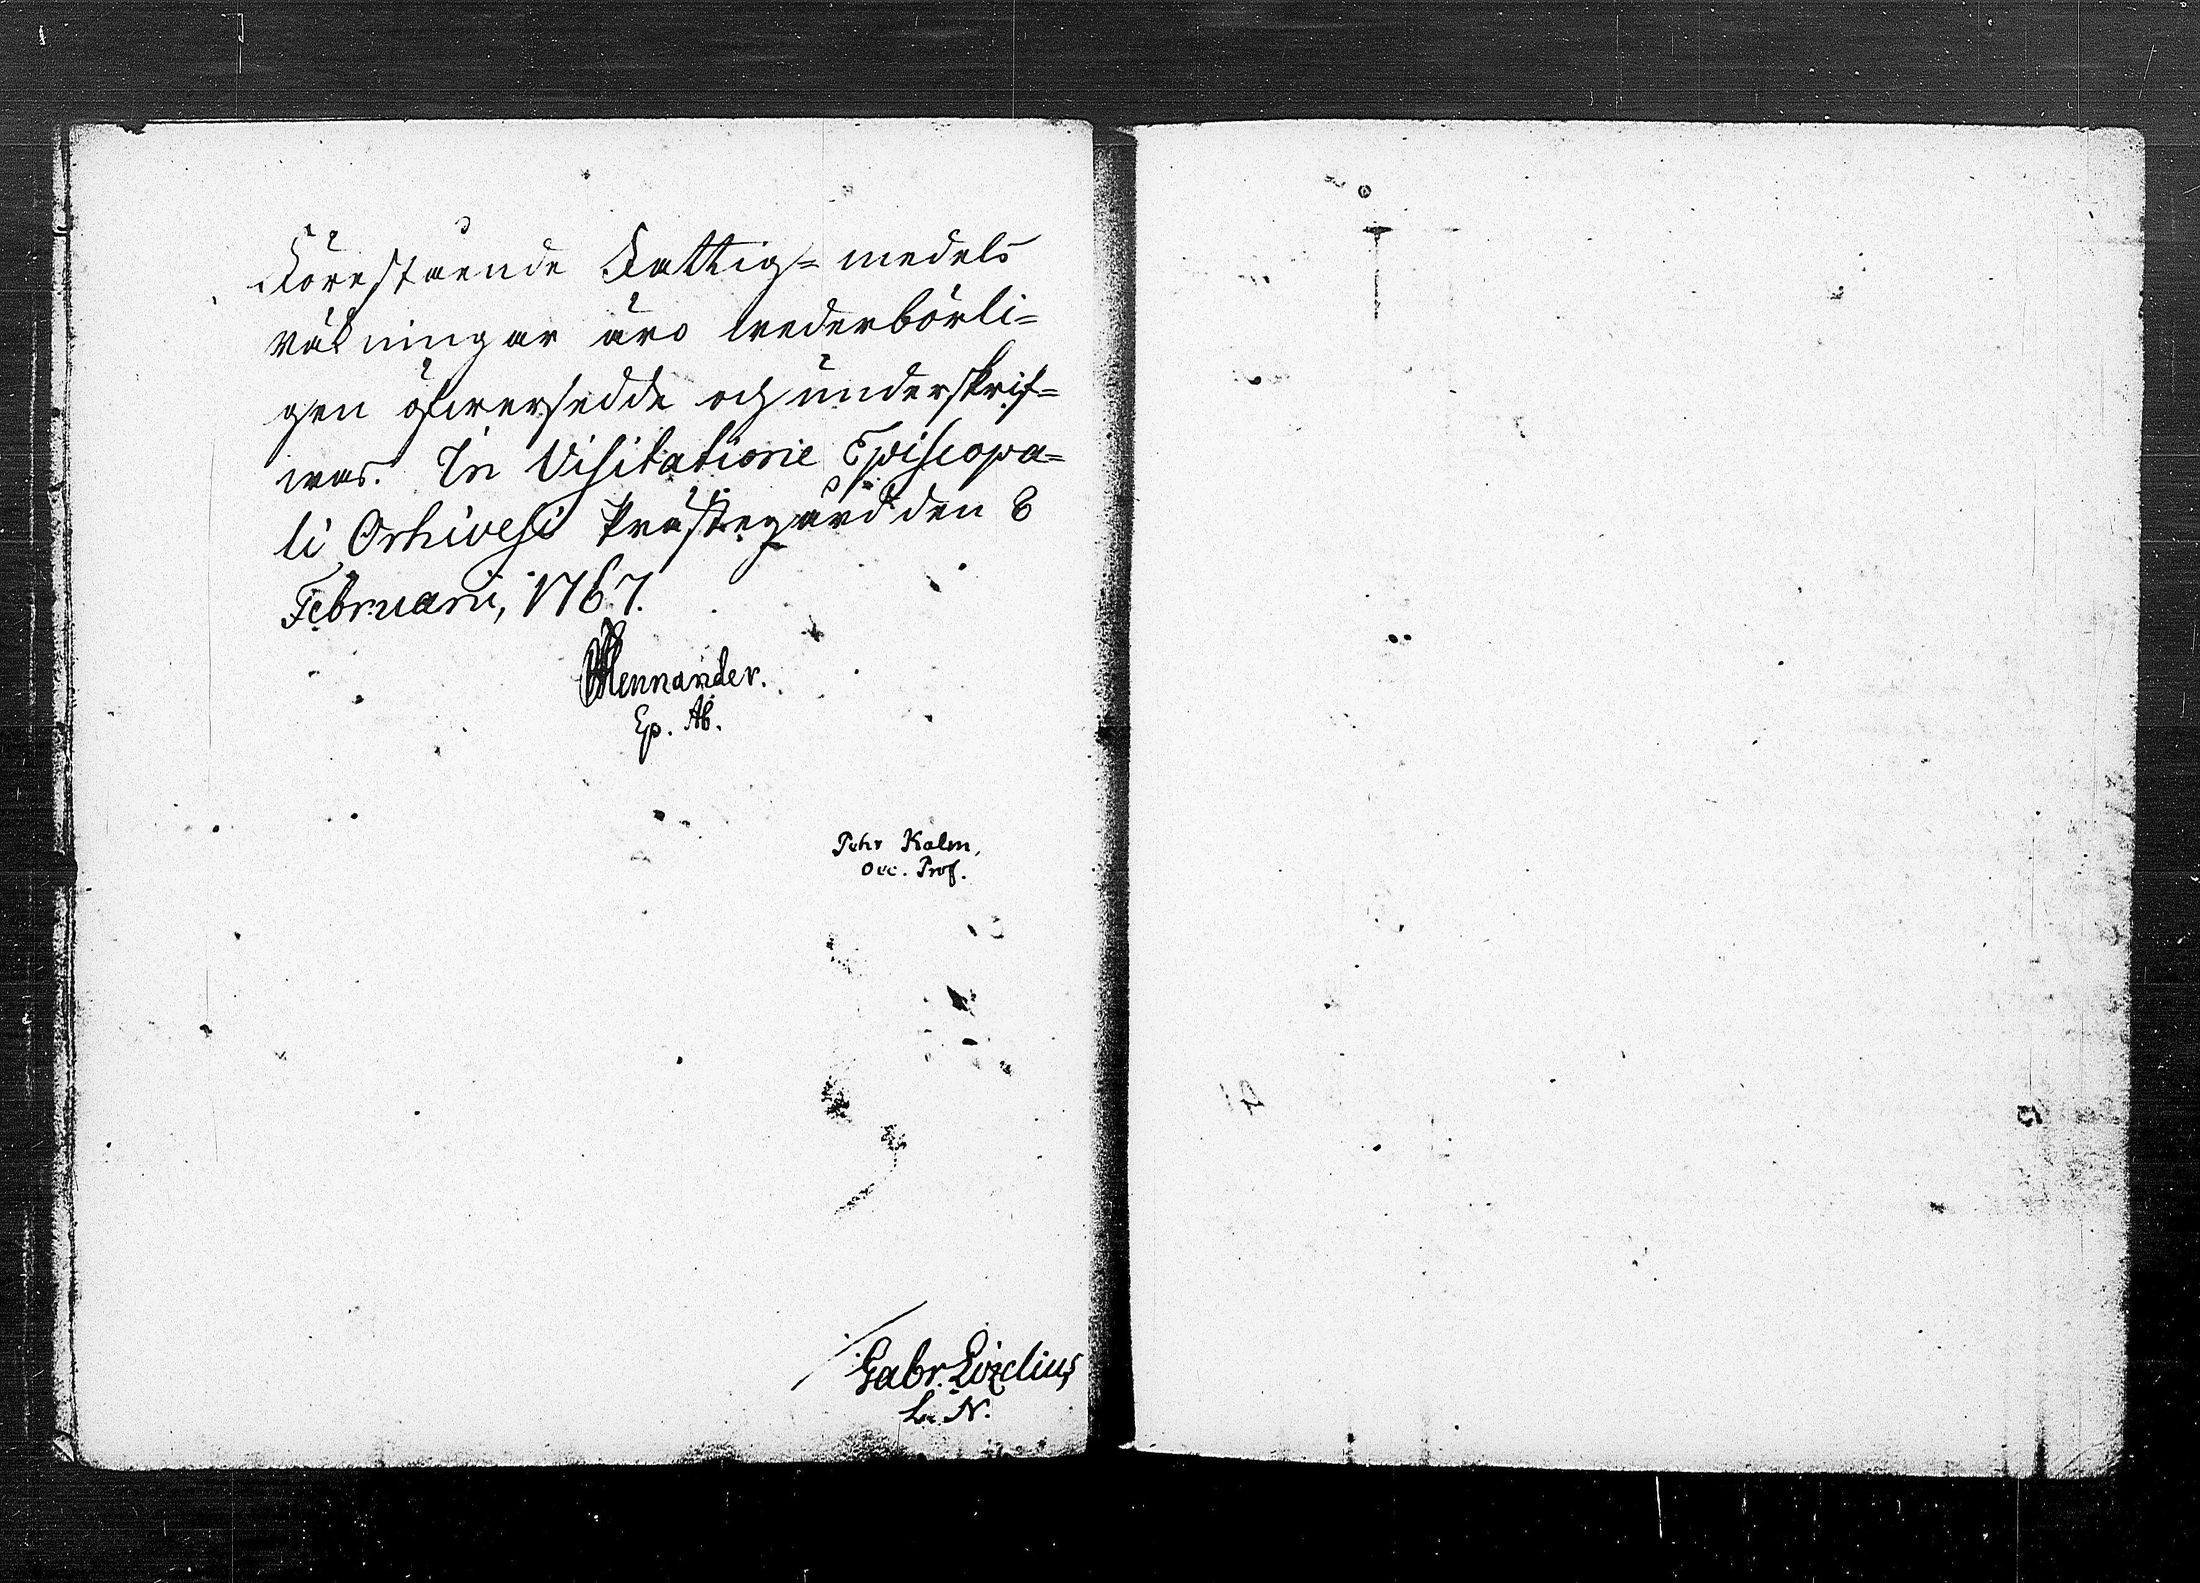 Förestående Fattig= medels
räkningar äro wederbörli=
gen öfwersedde och underskrif=
was. In Visitatione Episcopa=
li Orhivesi Prästegård den 8
Februarii, 1767.
Mennander.
Ep. Ab.
Pehr Kalm,
Oec. Prof.
Gabr. Lizelius
N.